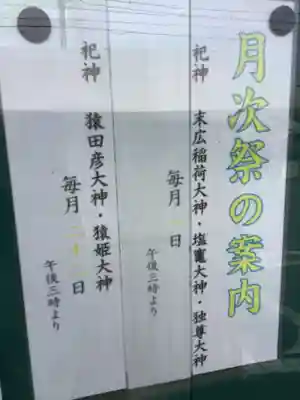 月次祭の案内
祀神 末広稲荷大神・塩竈大神・独尊大神
毎月一日
午後三時より
祀神 猿田彦大神・猿姫大神
毎月二十一日
午後三時より